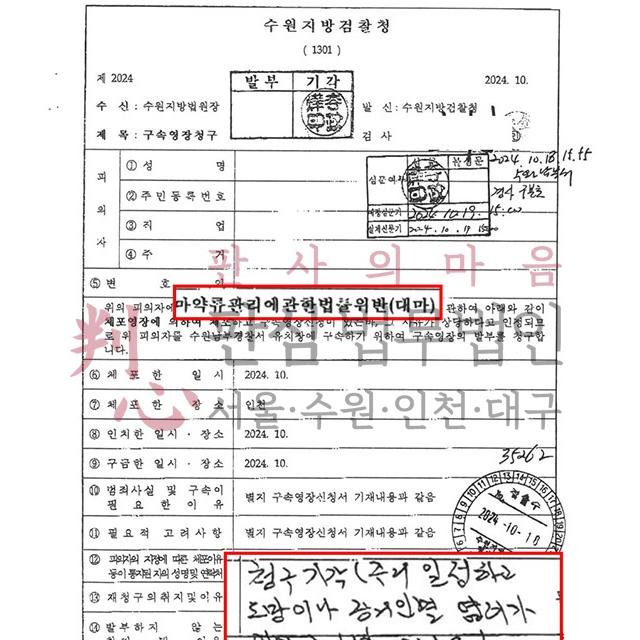 수원지방검찰청
( 1301 )
제 2024
2024. 10.
발 부 기 각
수 신 : 수원지방법원장
발 신 : 수원지방검찰청
제 목 : 구속영장청구
검 사
피의자
① 성 명
② 주민등록번호
③ 직 업
④ 주 거
심문여부
2024. 10. 19. 15:00
2024. 10. 17
⑤ 변 호 인
위 피의자에
마약류관리에관한법률위반(대마)
관하여 아래와 같이
체포영장에 의하여 체포하고
상당하다고 인정되므
로 위 피의자를 수원남부경찰서 유치장에 구속하기 위하여 구속영장의 발부를 청구합
니다.
판사의마음
判心
판심법무법인
서울·수원·인천·대구
⑥ 체 포 한 일 시
2024. 10.
⑦ 체 포 한 장 소
인천
⑧ 인치한 일시 · 장소
2024. 10.
⑨ 구금한 일시 · 장소
2024. 10.
35262
⑩ 범죄사실 및 구속이
필 요 한 이 유
별지 구속영장신청서 기재내용과 같음
⑪ 필요적 고려사항
별지 구속영장신청서 기재내용과 같음
2024-10-18
⑫ 피의자의 지정에 따른 체포이유
등이 통지된 자의 성명 및 연락처
⑬ 재청구의 취지 및 이유
청구기각 (주거 일정하고
도망이나 증거인멸 염려가
⑭ 발부하지 않는